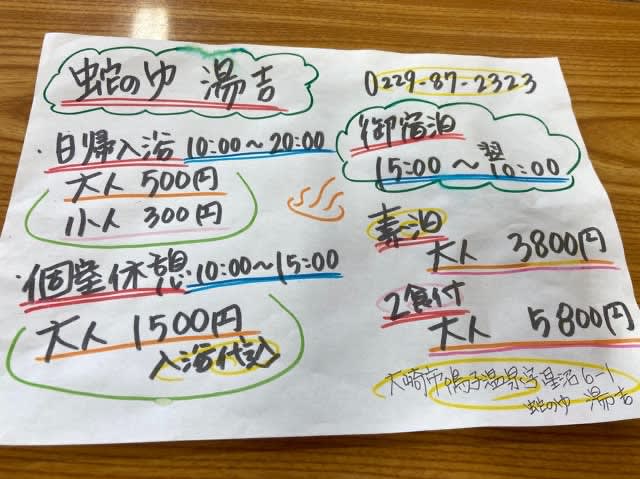 蛇のゆ 湯吉
・日帰入浴 10:00〜20:00
大人 500円
小人 300円
・個室休憩 10:00〜15:00
大人 1500円
入浴代込
0229-87-2323
御宿泊
15:00〜翌10:00
素泊
大人 3800円
2食付
大人 5800円
大崎市鳴子温泉字星沼6-1
蛇のゆ 湯吉